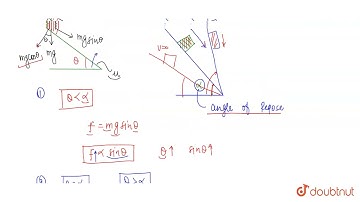 mg sinθ
θ
mg cosθ
mg
θ
μ
v=0
α
angle of repose
①
θ < α
f = mg sinθ
f↑ ∝ sinθ θ↑ sinθ↑
doubtnut